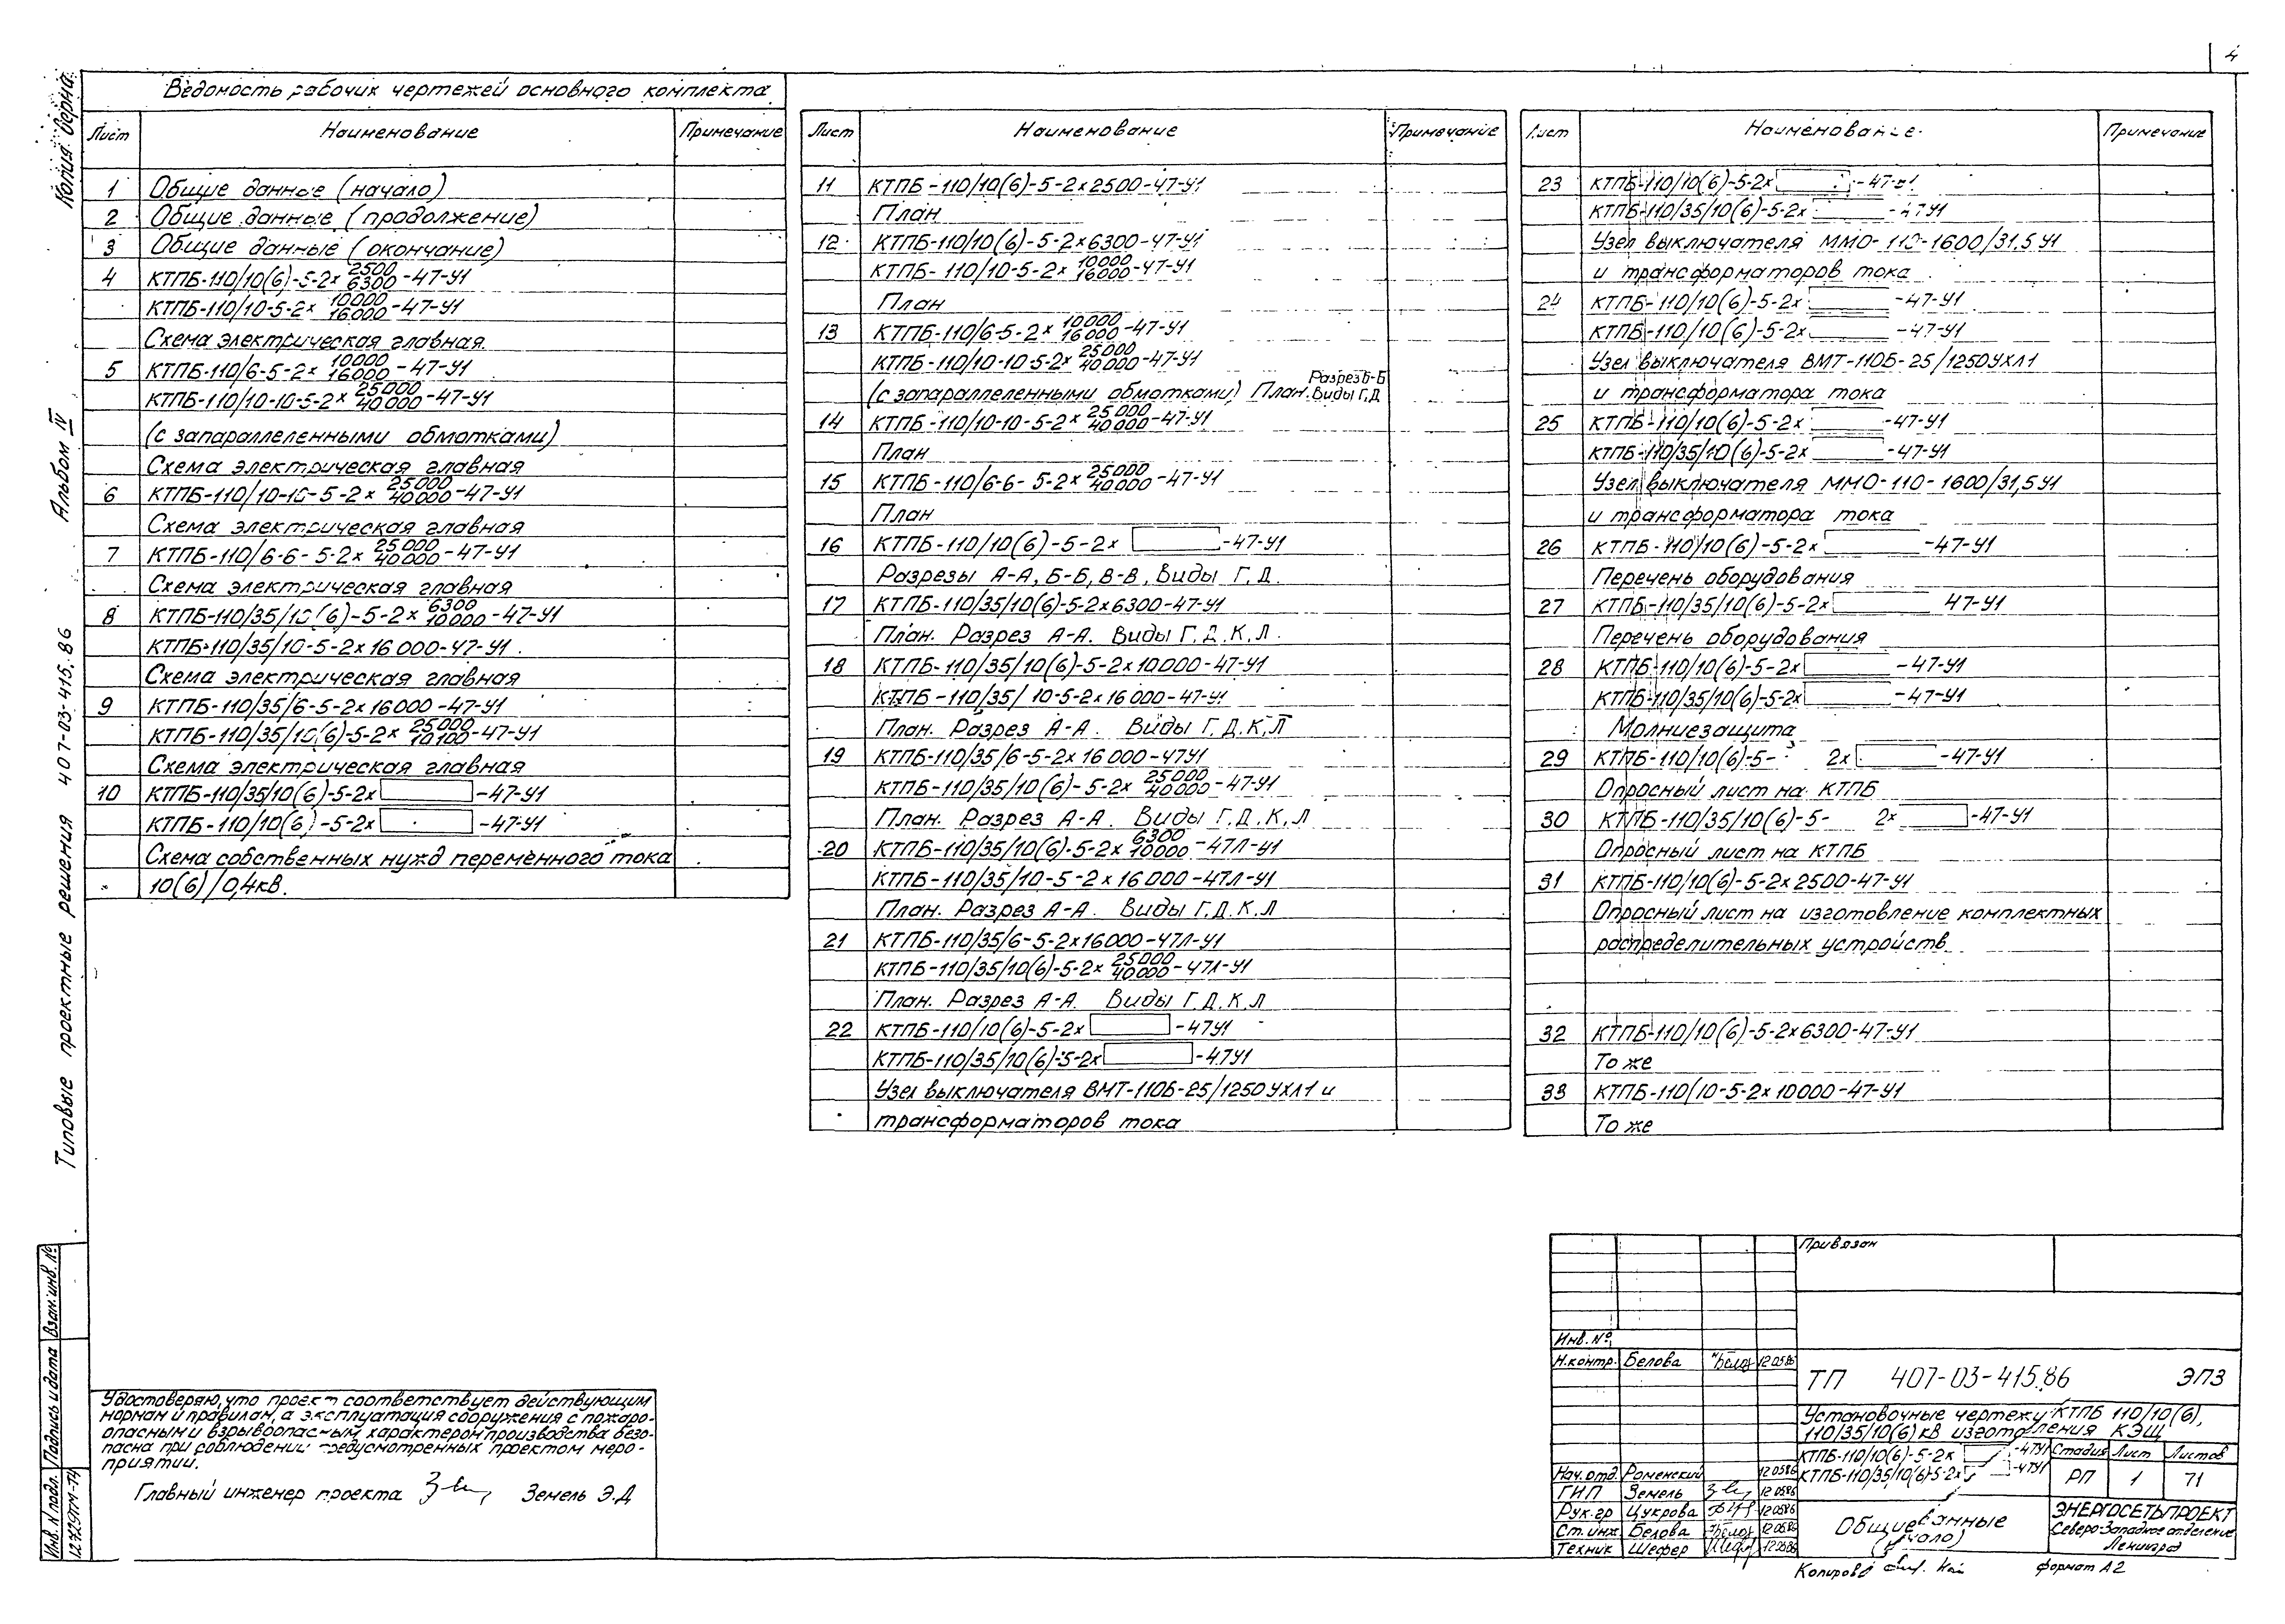 4
Копия Верна
Альбом IV
Типовые проектные решения 407-03-415.86
Ведомость рабочих чертежей основного комплекта
Лист Наименование Примечание
1 Общие данные (начало)
2 Общие данные (продолжение)
3 Общие данные (окончание)
4 КТПБ-110/10(6)-5-2х 2500/6300 -47-У1
КТПБ-110/10-5-2х 10000/16000 -47-У1
Схема электрическая главная
5 КТПБ-110/6-5-2х 10000/16000 -47-У1
КТПБ-110/10-10-5-2х 25000/40000 -47-У1
(с запараллеленными обмотками)
Схема электрическая главная
6 КТПБ-110/10-10-5-2х 25000/40000 -47-У1
Схема электрическая главная
7 КТПБ-110/6-6-5-2х 25000/40000 -47-У1
Схема электрическая главная
8 КТПБ-110/35/10(6)-5-2х 6300/10000 -47-У1
КТПБ-110/35/10-5-2х16000-47-У1
Схема электрическая главная
9 КТПБ-110/35/6-5-2х16000-47-У1
КТПБ-110/35/10(6)-5-2х 25000/10100 -47-У1
Схема электрическая главная
10 КТПБ-110/35/10(6)-5-2х -47-У1
КТПБ-110/10(6)-5-2х -47-У1
Схема собственных нужд переменного тока
10(6)/0,4кв.
Лист Наименование Примечание
11 КТПБ-110/10(6)-5-2х2500-47-У1
План
12 КТПБ-110/10(6)-5-2х6300-47-У1
КТПБ-110/10-5-2х 10000/16000 -47-У1
План
13 КТПБ-110/6-5-2х 10000/16000 -47-У1
КТПБ-110/10-10-5-2х 25000/40000 -47-У1
(с запараллеленными обмотками) План. Разрез Б-Б Виды Г,Д
14 КТПБ-110/10-10-5-2х 25000/40000 -47-У1
План
15 КТПБ-110/6-6-5-2х 25000/40000 -47-У1
План
16 КТПБ-110/10(6)-5-2х -47-У1
Разрезы А-А, Б-Б, В-В, Виды Г,Д.
17 КТПБ-110/35/10(6)-5-2х6300-47-У1
План. Разрез А-А. Виды Г,Д,К,Л.
18 КТПБ-110/35/10(6)-5-2х10000-47-У1
КТПБ-110/35/10-5-2х16000-47-У1
План. Разрез А-А. Виды Г,Д,К,Л
19 КТПБ-110/35/6-5-2х16000-47У1
КТПБ-110/35/10(6)-5-2х 25000/40000 -47-У1
План. Разрез А-А. Виды Г,Д,К,Л
20 КТПБ-110/35/10(6)-5-2х 6300/10000 -47Л-У1
КТПБ-110/35/10-5-2х16000-47Л-У1
План. Разрез А-А. Виды Г,Д,К,Л
21 КТПБ-110/35/6-5-2х16000-47Л-У1
КТПБ-110/35/10(6)-5-2х 25000/40000 -47Л-У1
План. Разрез А-А. Виды Г,Д,К,Л
22 КТПБ-110/10(6)-5-2х -47У1
КТПБ-110/35/10(6)-5-2х -47У1
Узел выключателя ВМТ-110Б-25/1250УХЛ1 и
трансформаторов тока
Лист Наименование Примечание
23 КТПБ-110/10(6)-5-2х -47-У1
КТПБ-110/35/10(6)-5-2х -47У1
Узел выключателя ММО-110-1600/31,5У1
и трансформаторов тока
24 КТПБ-110/10(6)-5-2х -47-У1
КТПБ-110/10(6)-5-2х -47-У1
Узел выключателя ВМТ-110Б-25/1250УХЛ1
и трансформатора тока
25 КТПБ-110/10(6)-5-2х -47-У1
КТПБ-110/35/10(6)-5-2х -47-У1
Узел выключателя ММО-110-1600/31,5У1
и трансформатора тока
26 КТПБ-110/10(6)-5-2х -47-У1
Перечень оборудования
27 КТПБ-110/35/10(6)-5-2х 47-У1
Перечень оборудования
28 КТПБ-110/10(6)-5-2х -47-У1
КТПБ-110/35/10(6)-5-2х -47-У1
Молниезащита
29 КТПБ-110/10(6)-5- 2х -47-У1
Опросный лист на КТПБ
30 КТПБ-110/35/10(6)-5- 2х -47-У1
Опросный лист на КТПБ
31 КТПБ-110/10(6)-5-2х2500-47-У1
Опросный лист на изготовление комплектных
распределительных устройств
32 КТПБ-110/10(6)-5-2х6300-47-У1
То же
33 КТПБ-110/10-5-2х10000-47-У1
То же
Взам. инв. №
Подпись и дата
Инв. № подл.
12729ТМ-Т4
Удостоверяю, что проект соответствует действующим
нормам и правилам, а эксплуатация сооружения с пожаро-
опасным и взрывоопасным характером производства безо-
пасна при соблюдении предусмотренных проектом меро-
приятий.
Главный инженер проекта Земель Э.Д
Привязан
Инв. №
Н.контр. Белова 12.05.86
ТП 407-03-415.86 ЭП3
Установочные чертежи КТПБ 110/10(6),
110/35/10(6) кв изготовления КЭЩ
КТПБ-110/10(6)-5-2х -47У1
КТПБ-110/35/10(6)-5-2х -47У1
Стадия Лист Листов
РП 1 71
Нач.отд. Роменский 12.05.86
ГИП Земель 12.05.86
Рук.гр Цукрова 12.05.86
Ст.инж. Белова 12.05.86
Техник Шефер 12.05.86
Общие данные
(начало)
ЭНЕРГОСЕТЬПРОЕКТ
Северо-Западное отделение
Ленинград
Копировал
формат А2